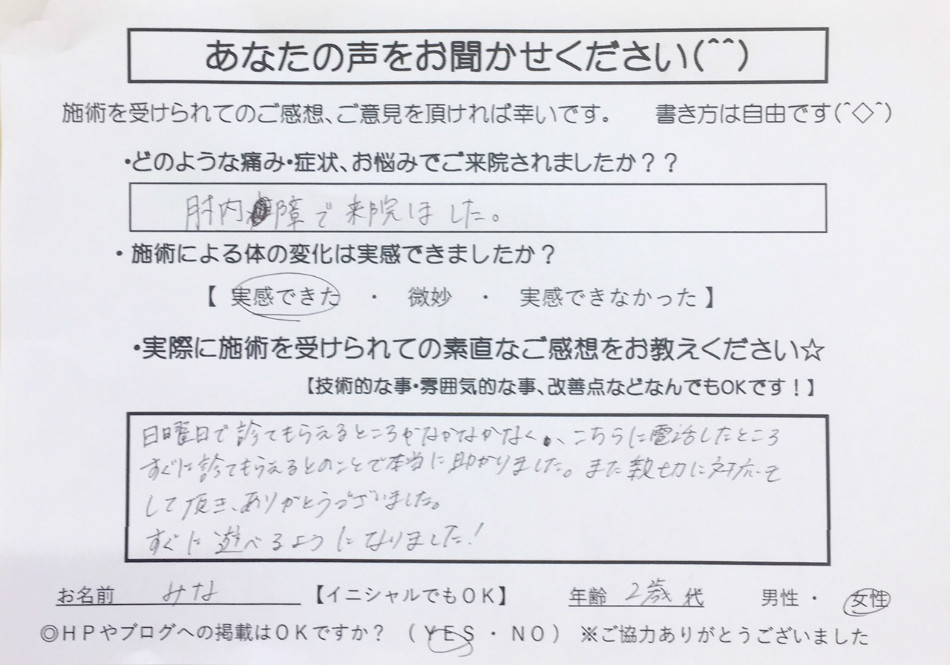 あなたの声をお聞かせください(^^)
施術を受けられてのご感想、ご意見を頂ければ幸いです。 書き方は自由です(^◇^)
・どのような痛み・症状、お悩みでご来院されましたか？？
肘内障で来院しました。
・施術による体の変化は実感できましたか？
【 実感できた ・ 微妙 ・ 実感できなかった 】
・実際に施術を受けられての素直なご感想をお教えください☆
【技術的な事・雰囲気的な事、改善点などなんでもOKです！】
日曜日で診てもらえるところがなかなかなく、こちらに電話したところ
すぐに診てもらえるとのことで本当に助かりました。また親切に対応を
して頂き、ありがとうございました。
すぐに遊べるようになりました！
お名前 みな 【イニシャルでもOK】 年齢 2歳 代 男性 ・ 女性
◎HPやブログへの掲載はOKですか？ （ YES ・ NO ） ※ご協力ありがとうございました